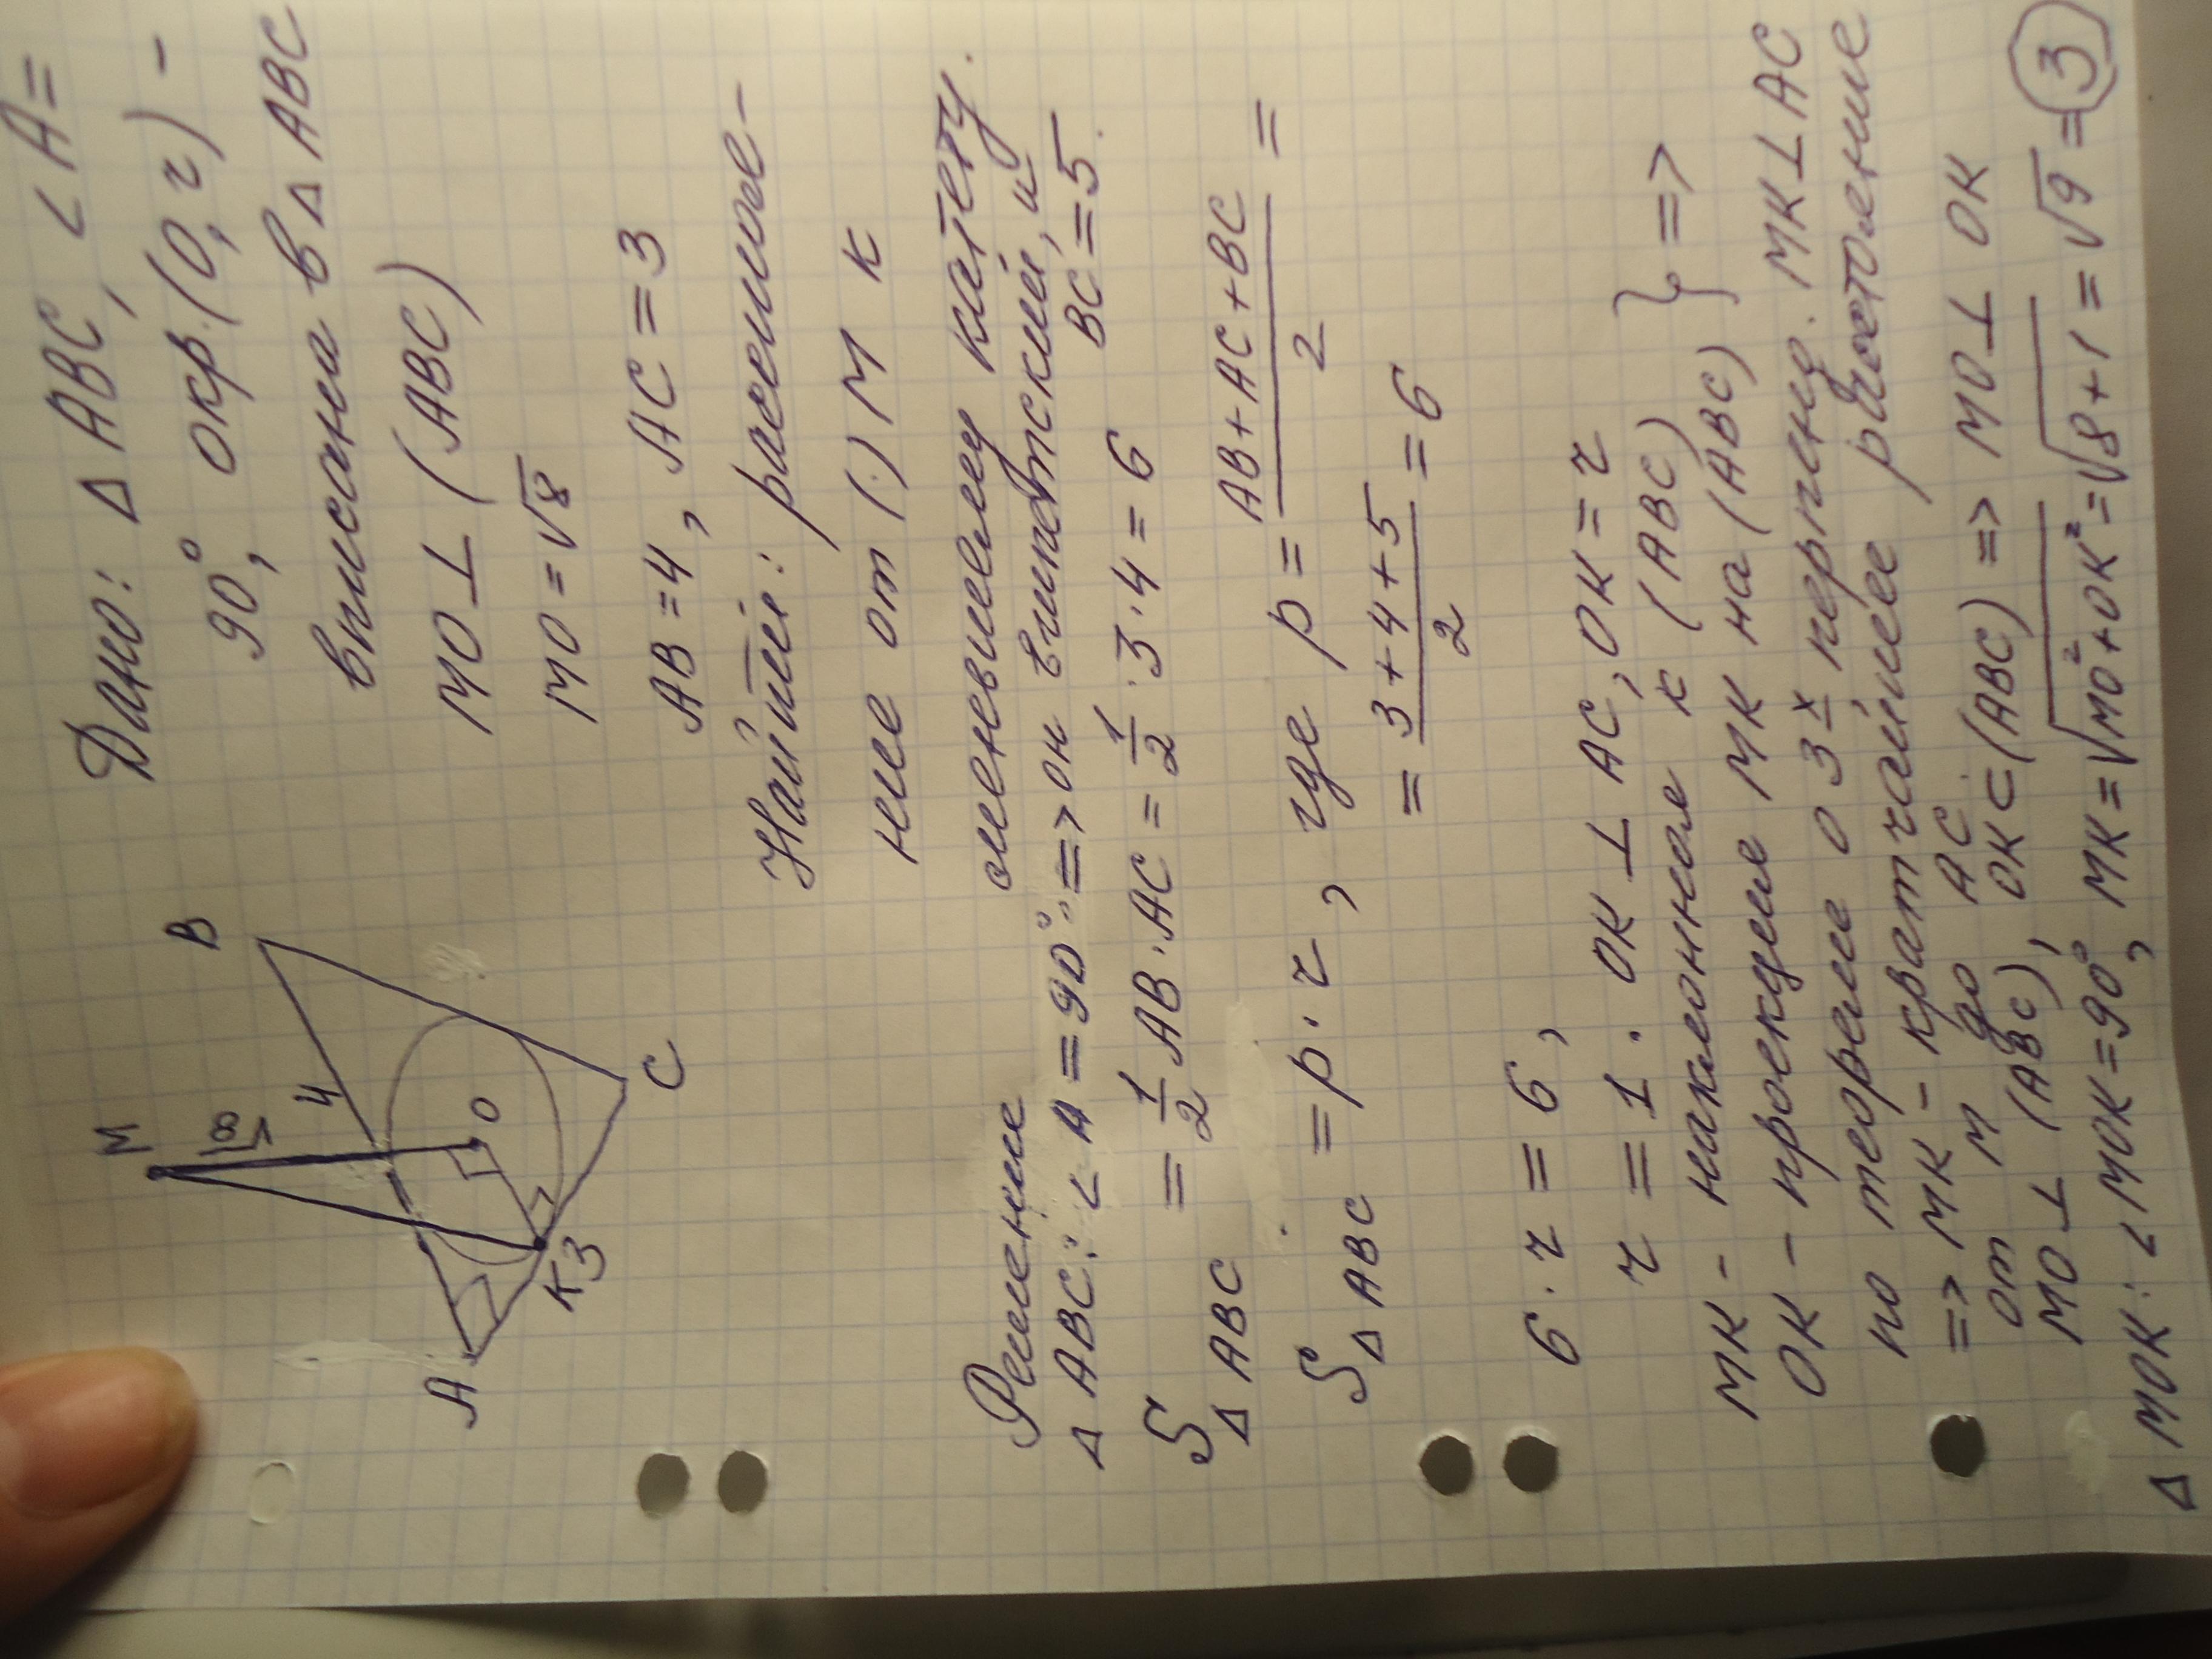 Дано: Δ ABC, ∠A=
90°, окр.(O, r) –
вписана в Δ ABC
MO ⊥ (ABC)
MO = √8
AB = 4, AC = 3
Найти: расстояе-
ние от (·) M к
меньшему катету.
M
√8
4
B
O
A
K
3
C
Решение
Δ ABC: ∠A = 90° => он египетский, и
BC = 5.
S Δ ABC = 1/2 AB · AC = 1/2 · 3 · 4 = 6
S Δ ABC = p · r, где p = (AB + AC + BC)/2 =
= (3 + 4 + 5)/2 = 6
6 · r = 6,
r = 1. OK ⊥ AC, OK = r
MK – наклонная к (ABC)
OK – проекция MK на (ABC) } =>
по теореме о 3х перпенд. MK ⊥ AC
=> MK – кратчайшее расстояние
от M до AC.
MO ⊥ (ABC), OK ⊂ (ABC) => MO ⊥ OK
Δ MOK: ∠MOK = 90°, MK = √MO² + OK² = √8 + 1 = √9 = 3